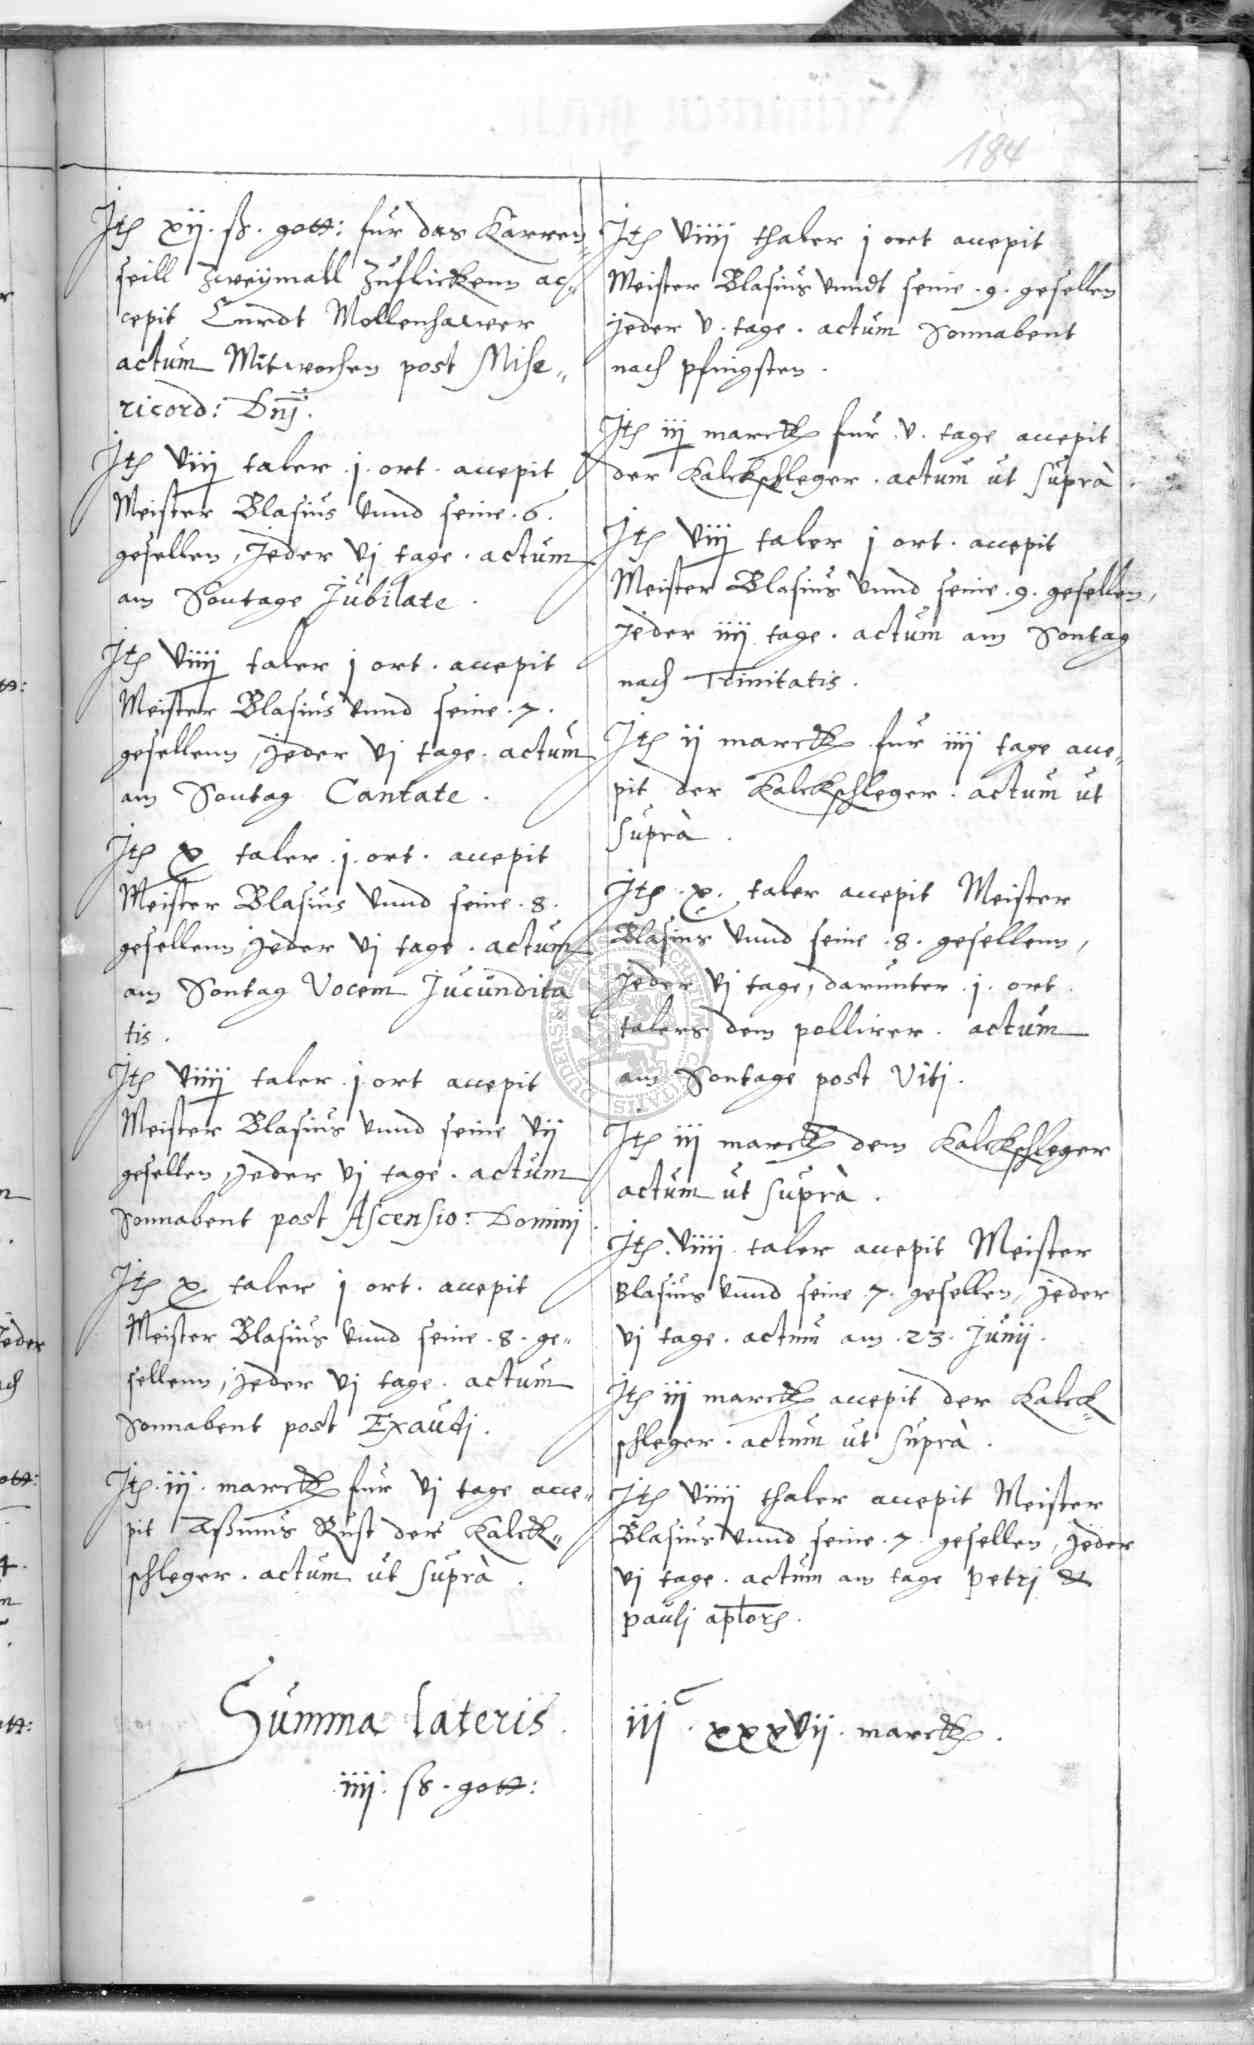 184
Ith xij. ß. gott: fur das Karren
seill zweymall zuflickenn ac„
cepit Curdt Mollenhawer
actum Mitwochen post Mise„
ricord: Dnj.
Ith viij taler .j. ort. accepit
Meister Blasius vnnd seine .6.
gesellen, Jeder vj tage. actum
am Sontage Jubilate.
Ith viiij taler j ort. accepit
Meister Blasius vnnd seine .7.
gesellenn, Jeder vj tage. actum
am Sontag Cantate.
Ith x taler .j. ort. accepit
Meister Blasius vnnd seine .8.
gesellenn Jeder vj tage. actum
am Sontag Vocem Jucundita
tis.
Ith viiij taler .j. ort accepit
Meister Blasius vnnd seine vij
gesellen, Jeder vj tage. actum
Sonnabent post Ascensio: Dominj.
Ith x taler j ort. accepit
Meister Blasius vnnd seine .8. ge„
sellenn, Jeder vj tage. actum
Sonnabent post Exaudj.
Ith .iij. marck fur vj tage acce„
pit Aßmus Rust der Kalck„
schleger. actum ut suprà.
Ith viiij thaler j ort accepit
Meister Blasius vnndt seine .9. gesellen
Jeder v. tage. actum Sonnabent
nach pfingsten.
Ith iij marck fur .v. tage accepit
der Kalckschleger. actum ut suprà.
Ith viij taler j ort. accepit
Meister Blasius vnnd seine .9. gesellen,
Jeder iiij tage. actum am Sontag
nach Trinitatis.
Ith ij marck fur iiij tage acce„
pit der Kalckschleger. actum ut
suprà.
Ith .x. taler accepit Meister
Blasius vnnd seine .8. gesellenn,
Jeder vj tage, darunter .j. ort
talers dem pollirer. actum
am Sontage post Vitj.
Ith iij marck dem Kalckschleger
actum ut suprà.
Ith. viiij taler accepit Meister
Blasius vnnd seine .7. gesellen, Jeder
vj tage. actum am .23. Junij.
Ith iij marck accepit der Kalck„
schleger. actum ut suprà.
Ith viiij thaler accepit Meister
Blasius vnnd seine .7. gesellen, Jeder
vj tage. actum am tage Petrj &
Paulj aplor.
Summa lateris. iij C. xxxvij. marck.
.iiij. ß. gott: